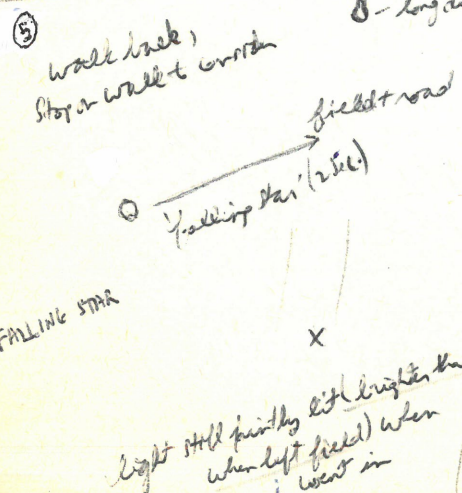 ⑤
walk back,
Stop or walk t
field + road
'falling star' (2 sec.)
FALLING STAR
X
light still faintly lit (brighter than
when left field) when
went in